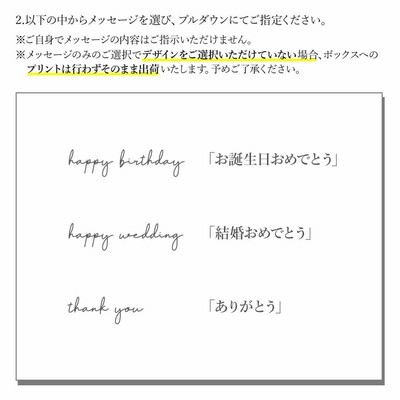 2.以下の中からメッセージを選び、プルダウンにてご指定ください。
※ご自身でメッセージの内容はご指示いただけません。
※メッセージのみのご選択でデザインをご選択いただけていない場合、ボックスへの
プリントは行わずそのまま出荷いたします。予めご了承ください。
happy birthday 「お誕生日おめでとう」
happy wedding 「結婚おめでとう」
thank you 「ありがとう」